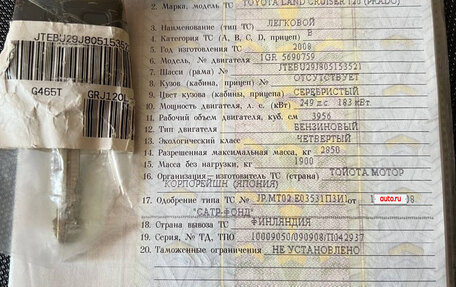 JTEBU29J80515352
G465T GRJ120L
2. Марка, модель ТС TOYOTA LAND CRUISER 120 (PRADO)
3. Наименование (тип ТС) ЛЕГКОВОЙ
4. Категория ТС (А, В, С, D, прицеп) В
5. Год изготовления ТС 2008
6. Модель, № двигателя 1GR 5690759
7. Шасси (рама) № JTEBU29J805153521
8. Кузов (кабина, прицеп) № ОТСУТСТВУЕТ
9. Цвет кузова (кабины, прицепа) СЕРЕБРИСТЫЙ
10. Мощность двигателя, л. с. (кВт) 249 л.с. 183 кВт.
11. Рабочий объем двигателя, куб. см 3956
12. Тип двигателя БЕНЗИНОВЫЙ
13. Экологический класс ЧЕТВЕРТЫЙ
14. Разрешенная максимальная масса, кг 2850
15. Масса без нагрузки, кг 1900
16. Организация – изготовитель ТС (страна) ТОЙОТА МОТОР
КОРПОРЕЙШН (ЯПОНИЯ)
17. Одобрение типа ТС № JP.MT02.E03531П3И1 от auto.ru
"САТР-ФОНД"
18. Страна вывоза ТС ФИНЛЯНДИЯ
19. Серия, № ТД, ТПО 10009050/090908/П042937
20. Таможенные ограничения НЕ УСТАНОВЛЕНО